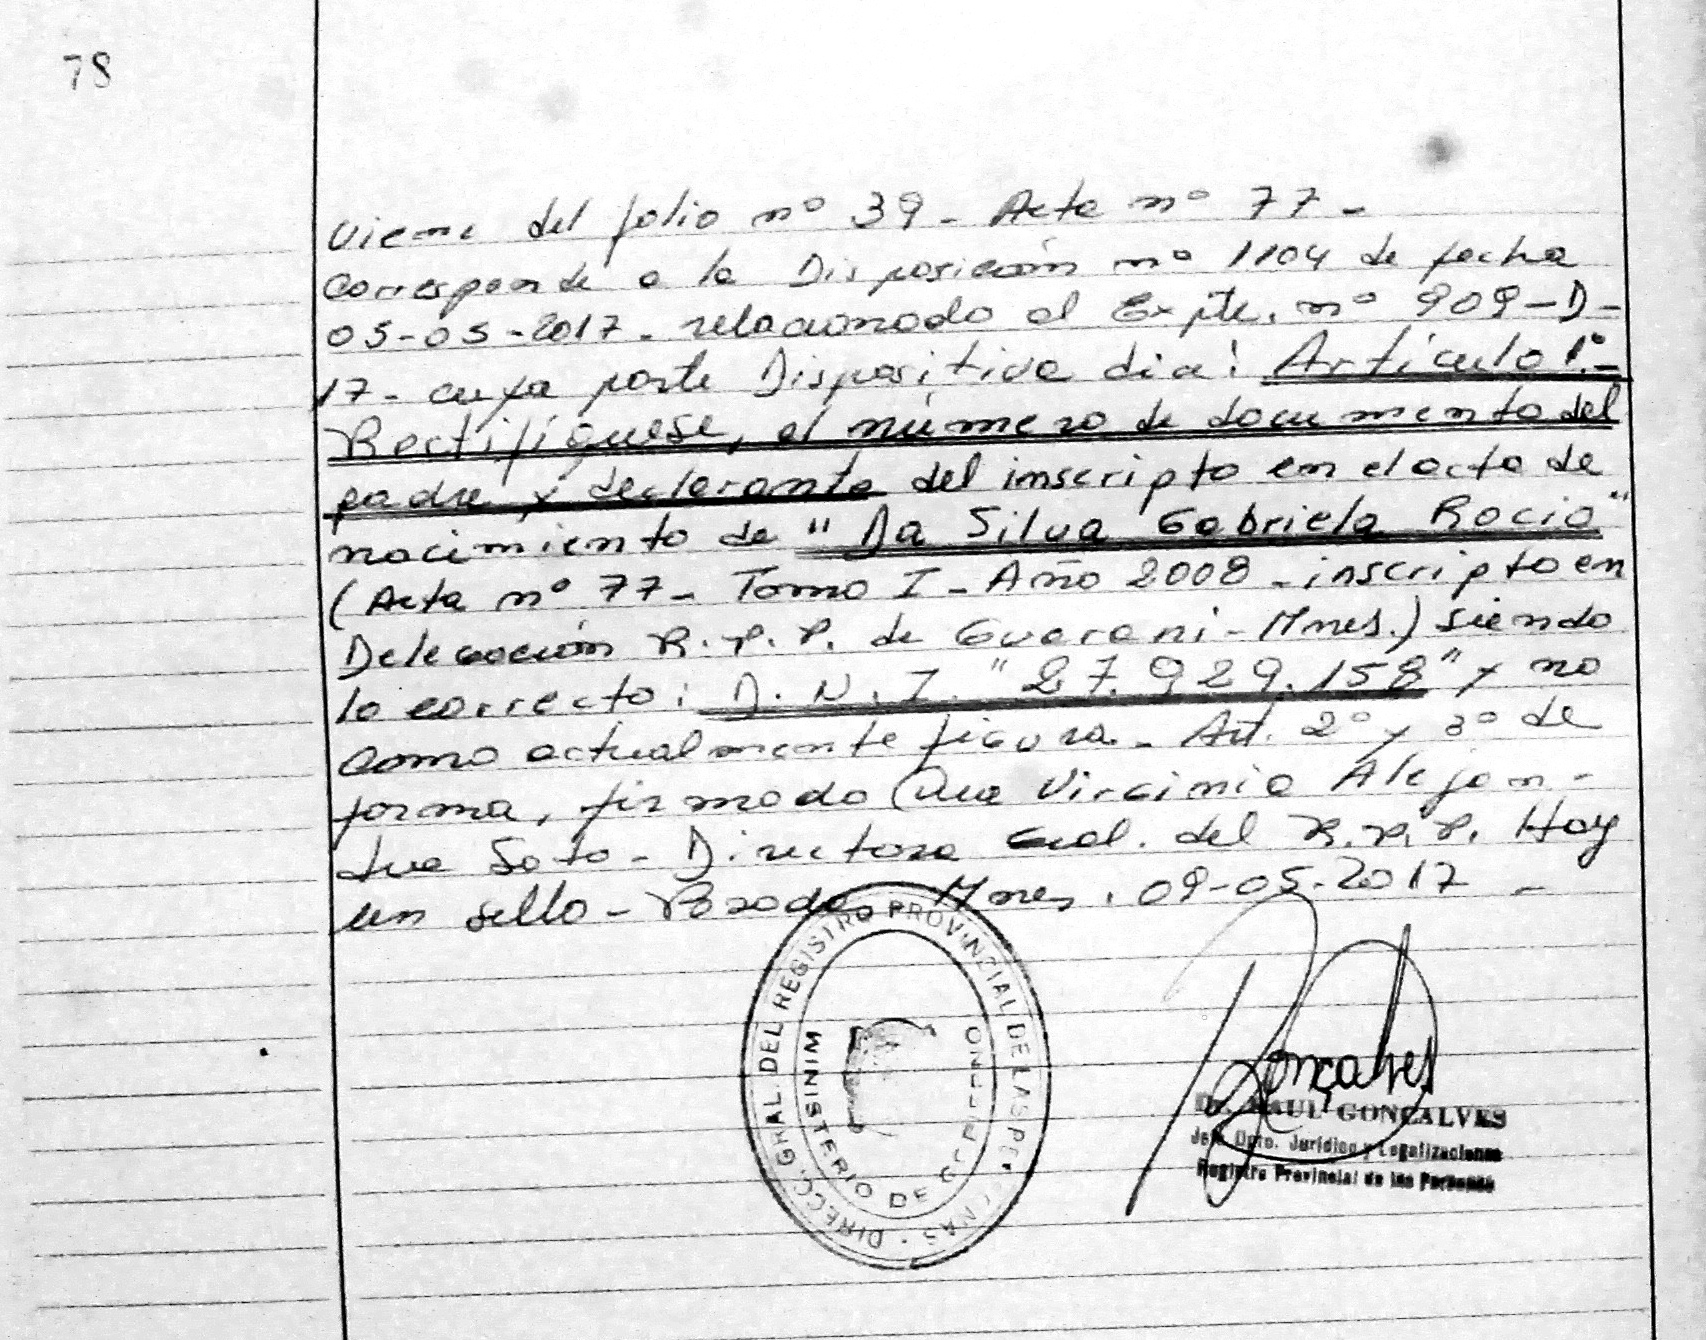 78
Viene del folio nº 39 - Acta nº 77 -
Corresponde a la Disposición nº 1104 de fecha
05-05-2017 - relacionado al Expte. nº 909-D-
17 - cuya parte Dispositiva dice: Artículo 1º.-
Rectifíquese, el número de documento del
padre y declarante del inscripto en el acta de
nacimiento de "Da Silva Gabriela Rocio"
(Acta nº 77 - Tomo I - Año 2008 - inscripto en
Delegación R.P.P. de Guarani - Mnes.) siendo
lo correcto: D.N.I. "27.929.158" y no
como actualmente figura - Art. 2º y 3º de
forma, firmado Virginia Alejan-
dra Soto - Directora Gral. del R.P.P. Hay
un sello - Posadas Mnes, 09-05-2017 -
DIRECC. GRAL. DEL REGISTRO PROVINCIAL DE LAS PERSONAS
MINISTERIO DE GOBIERNO
Gonçalves
Dr. RAUL GONÇALVES
Jefe Dpto. Jurídico y Legalizaciones
Registro Provincial de las Personas